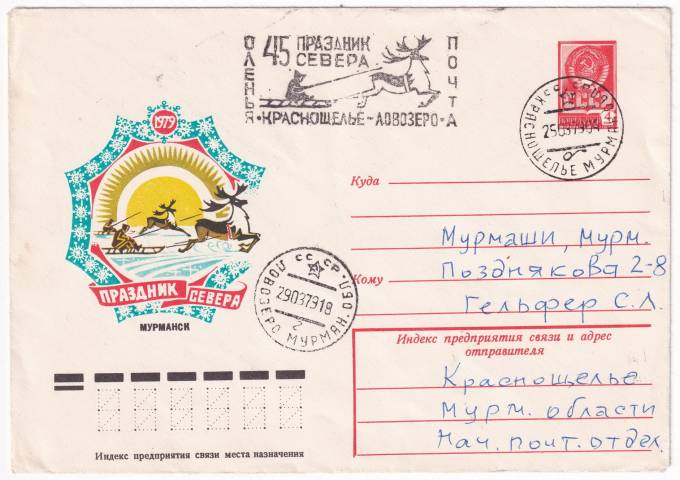 ОЛЕНЬЯ
45 ПРАЗДНИК
СЕВЕРА
ПОЧТА
КРАСНОЩЕЛЬЕ-ЛОВОЗЕРО
4
СССР
КРАСНОЩЕЛЬЕ МУРМАН.
25037909
1979
ПРАЗДНИК СЕВЕРА
МУРМАНСК
СССР
29037918
ЛОВОЗЕРО МУРМАН. ОБЛ
2
Куда
Мурмаши, Мурм.
Позднякова 2-8
Кому
Гельфер С.Л.
Индекс предприятия связи и адрес
отправителя
Краснощелье
Мурм. области
Нач. почт. отдел.
Индекс предприятия связи места назначения